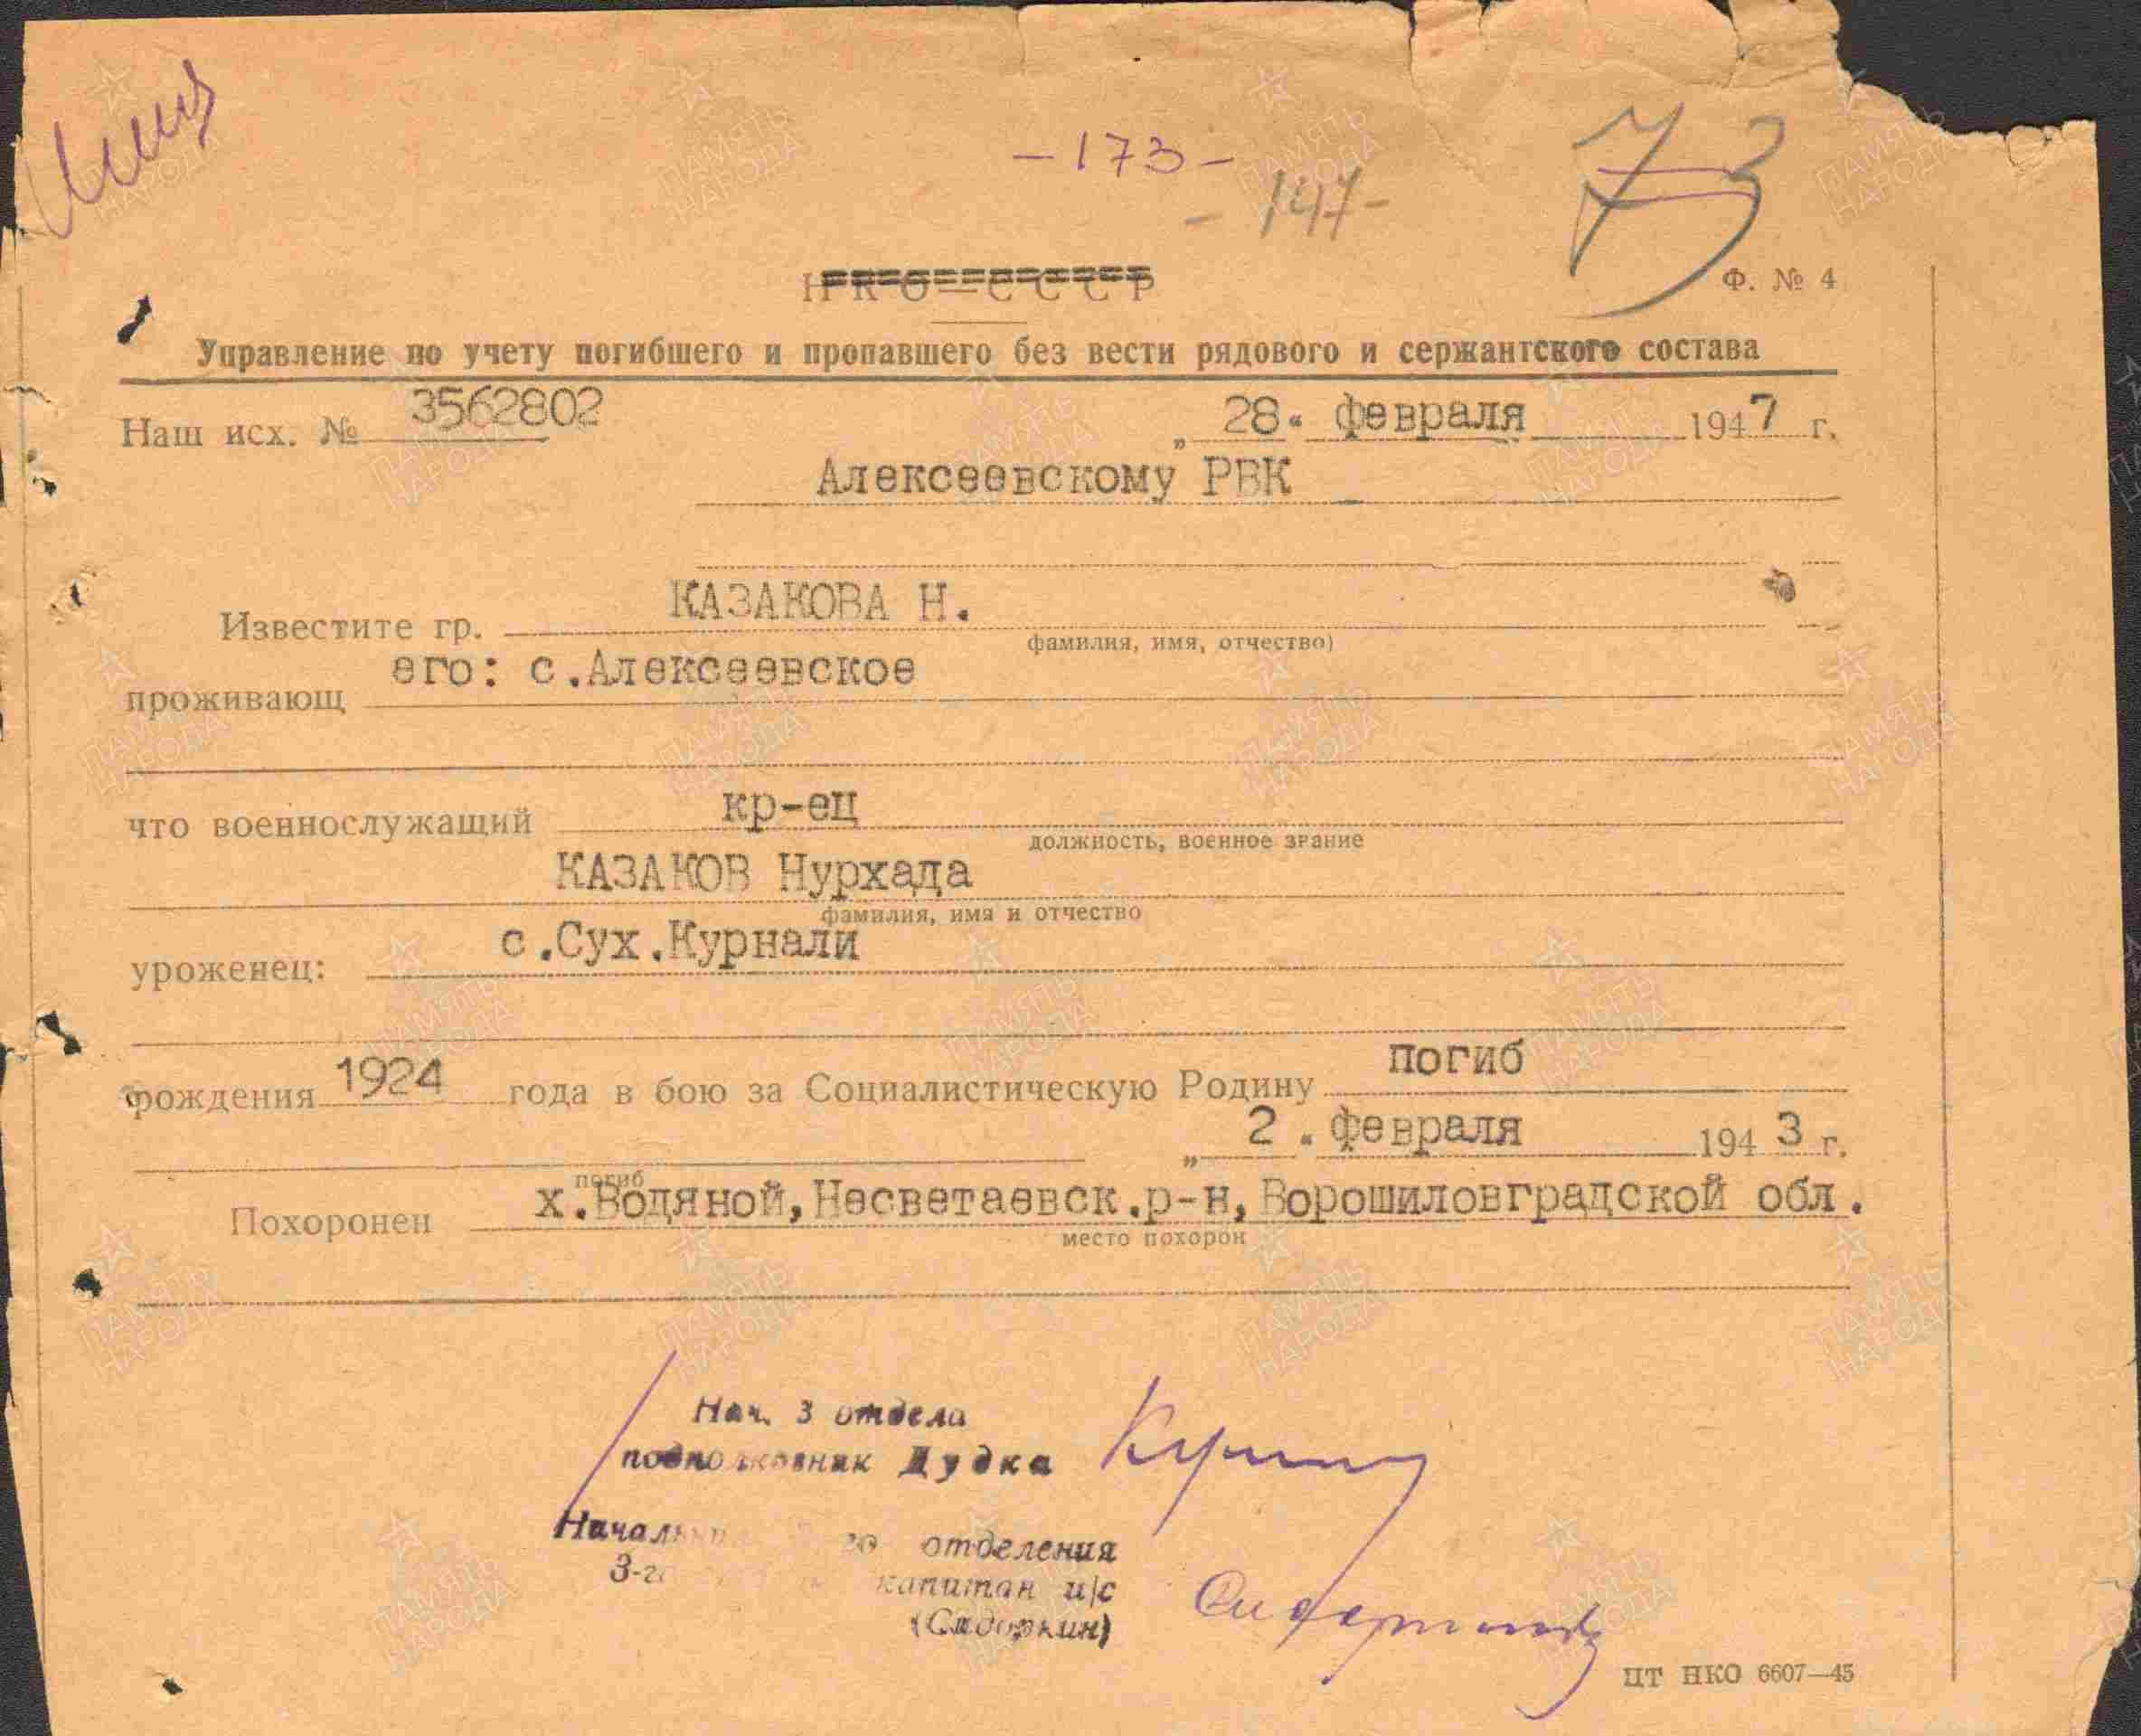 - 173 -
- 147 -
73
НКО—СССР
Ф. № 4
Управление по учету погибшего и пропавшего без вести рядового и сержантского состава
Наш исх. № 3562802 „ 28 " февраля 1947 г.
Алексеевскому РВК
Известите гр. КАЗАКОВА Н.
фамилия, имя, отчество)
проживающ его: с.Алексеевское
что военнослужащий кр-ец
должность, военное звание
КАЗАКОВ Нурхада
фамилия, имя и отчество
уроженец: с.Сух.Курнали
рождения 1924 года в бою за Социалистическую Родину погиб
„ 2 " февраля 1943 г.
погиб
Похоронен х.Водяной, Несветаевск.р-н, Ворошиловградской обл.
место похорон
Нач. 3 отдела
подполковник Дудка
Начальник го отделения
3-го капитан и/с
(Сидоркин)
Сидоркин
ЦТ НКО 6607—45
ПАМЯТЬ НАРОДА